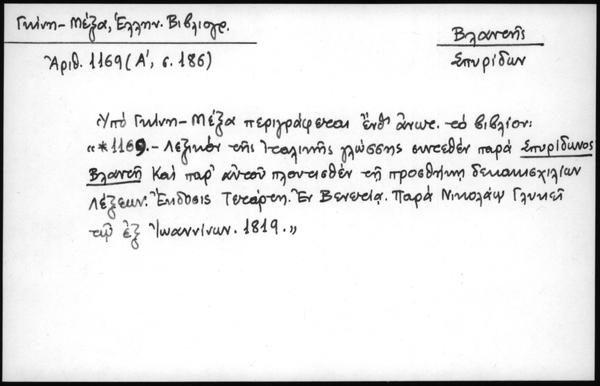 Γκίνη-Μέξα, Ἑλλην. Βιβλιογρ.
Ἀριθ. 1169 (Α΄, σ. 186)
Βλαντῆς
Σπυρίδων
Ὑπό Γκίνη-Μέξα περιγράφεται ἔνθ' ἀνωτ. τό βιβλίον:
«*1169.- Λεξικόν τῆς Ἰταλικῆς γλώσσης συντεθέν παρά Σπυρίδωνος
Βλαντῆ Καί παρ' αὐτοῦ πλουτισθέν τῇ προσθήκῃ δεκακισχιλίων
Λέξεων. Ἔκδοσις Τετάρτη. Ἐν Βενετίᾳ. Παρά Νικολάῳ Γλυκεῖ
τῷ ἐξ Ἰωαννίνων. 1819.»